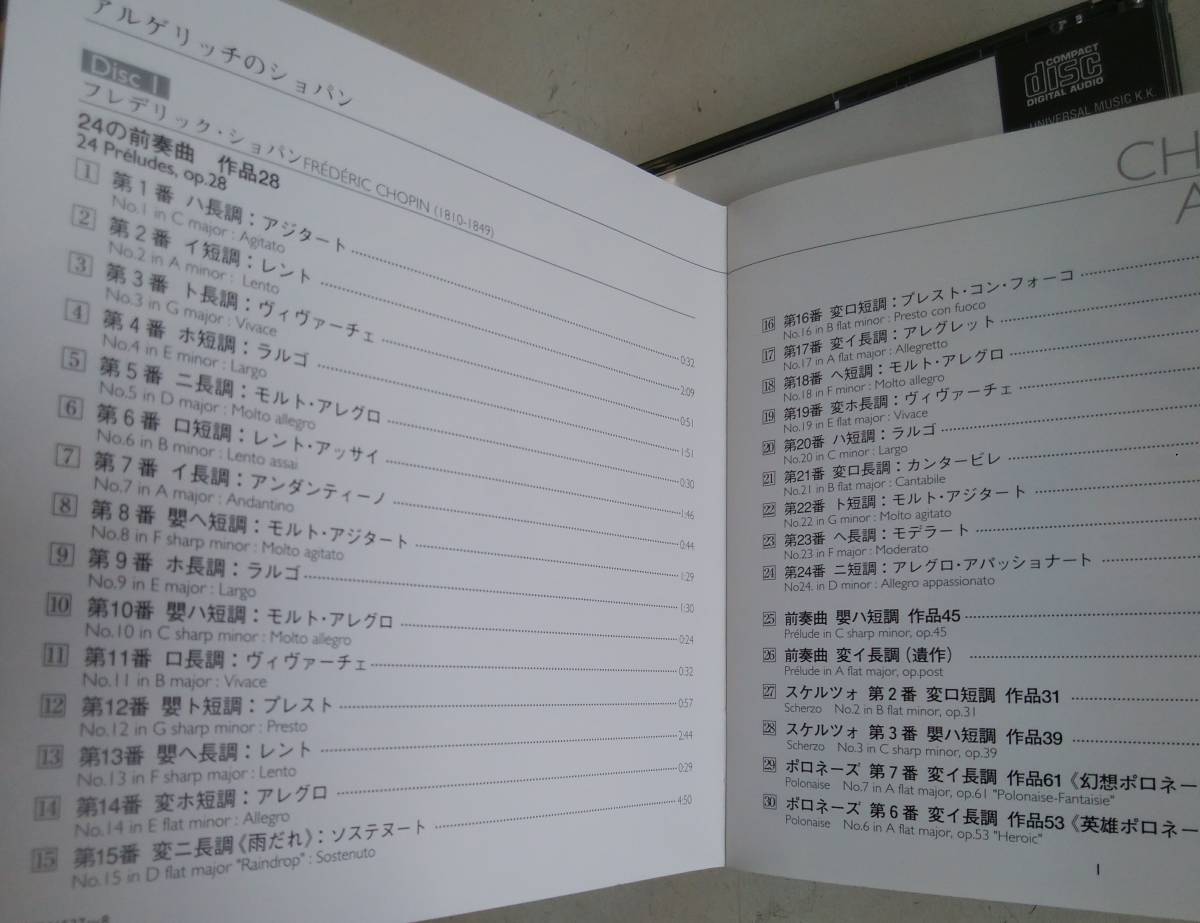 アルゲリッチのショパン
Disc 1
フレデリック・ショパン FRÉDÉRIC CHOPIN (1810-1849)
24の前奏曲 作品28
24 Préludes, op.28
1 第1番 ハ長調：アジタート 0:32
No.1 in C major : Agitato
2 第2番 イ短調：レント 2:09
No.2 in A minor : Lento
3 第3番 ト長調：ヴィヴァーチェ 0:51
No.3 in G major : Vivace
4 第4番 ホ短調：ラルゴ 1:51
No.4 in E minor : Largo
5 第5番 ニ長調：モルト・アレグロ 0:30
No.5 in D major : Molto allegro
6 第6番 ロ短調：レント・アッサイ 1:46
No.6 in B minor : Lento assai
7 第7番 イ長調：アンダンティーノ 0:44
No.7 in A major : Andantino
8 第8番 嬰ヘ短調：モルト・アジタート 1:29
No.8 in F sharp minor : Molto agitato
9 第9番 ホ長調：ラルゴ 1:30
No.9 in E major : Largo
10 第10番 嬰ハ短調：モルト・アレグロ 0:24
No.10 in C sharp minor : Molto allegro
11 第11番 ロ長調：ヴィヴァーチェ 0:32
No.11 in B major : Vivace
12 第12番 嬰ト短調：プレスト 0:57
No.12 in G sharp minor : Presto
13 第13番 嬰ヘ長調：レント 2:44
No.13 in F sharp major : Lento
14 第14番 変ホ短調：アレグロ 0:29
No.14 in E flat minor : Allegro
15 第15番 変ニ長調《雨だれ》：ソステヌート 4:50
No.15 in D flat major "Raindrop" : Sostenuto
COMPACT
disc
DIGITAL AUDIO
UNIVERSAL MUSIC K.K.
CH
A
16 第16番 変ロ短調：プレスト・コン・フォーコ
No.16 in B flat minor : Presto con fuoco
17 第17番 変イ長調：アレグレット
No.17 in A flat major : Allegretto
18 第18番 ヘ短調：モルト・アレグロ
No.18 in F minor : Molto allegro
19 第19番 変ホ長調：ヴィヴァーチェ
No.19 in E flat major : Vivace
20 第20番 ハ短調：ラルゴ
No.20 in C minor : Largo
21 第21番 変ロ長調：カンタービレ
No.21 in B flat major : Cantabile
22 第22番 ト短調：モルト・アジタート
No.22 in G minor : Molto agitato
23 第23番 ヘ長調：モデラート
No.23 in F major : Moderato
24 第24番 ニ短調：アレグロ・アパッショナート
No24. in D minor : Allegro appassionato
25 前奏曲 嬰ハ短調 作品45
Prélude in C sharp minor, op.45
26 前奏曲 変イ長調（遺作）
Prélude in A flat major, op.post
27 スケルツォ 第2番 変ロ短調 作品31
Scherzo No.2 in B flat minor, op.31
28 スケルツォ 第3番 嬰ハ短調 作品39
Scherzo No.3 in C sharp minor, op.39
29 ポロネーズ 第7番 変イ長調 作品61《幻想ポロネー
Polonaise No.7 in A flat major, op.61 "Polonaise-Fantaisie"
30 ポロネーズ 第6番 変イ長調 作品53《英雄ポロネー
Polonaise No.6 in A flat major, op.53 "Heroic"
1